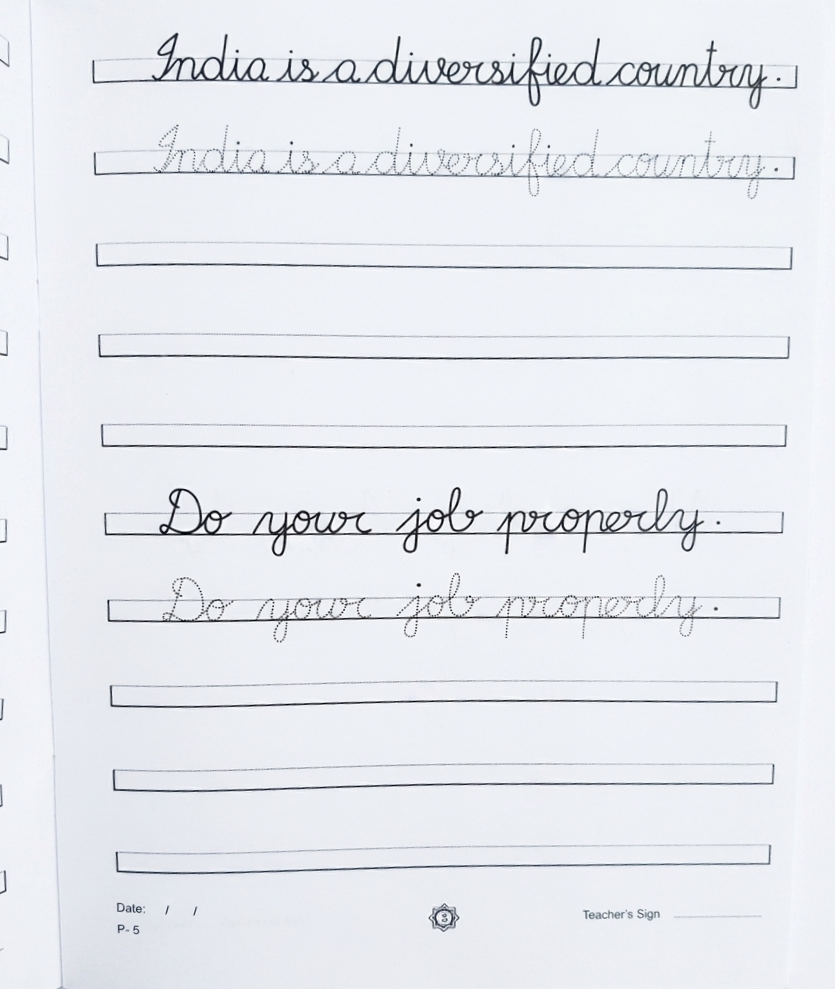 India is a diversified country.
India is a diversified country.
Do your job properly.
Do your job properly.
Date: / /
P- 5
3
Teacher's Sign